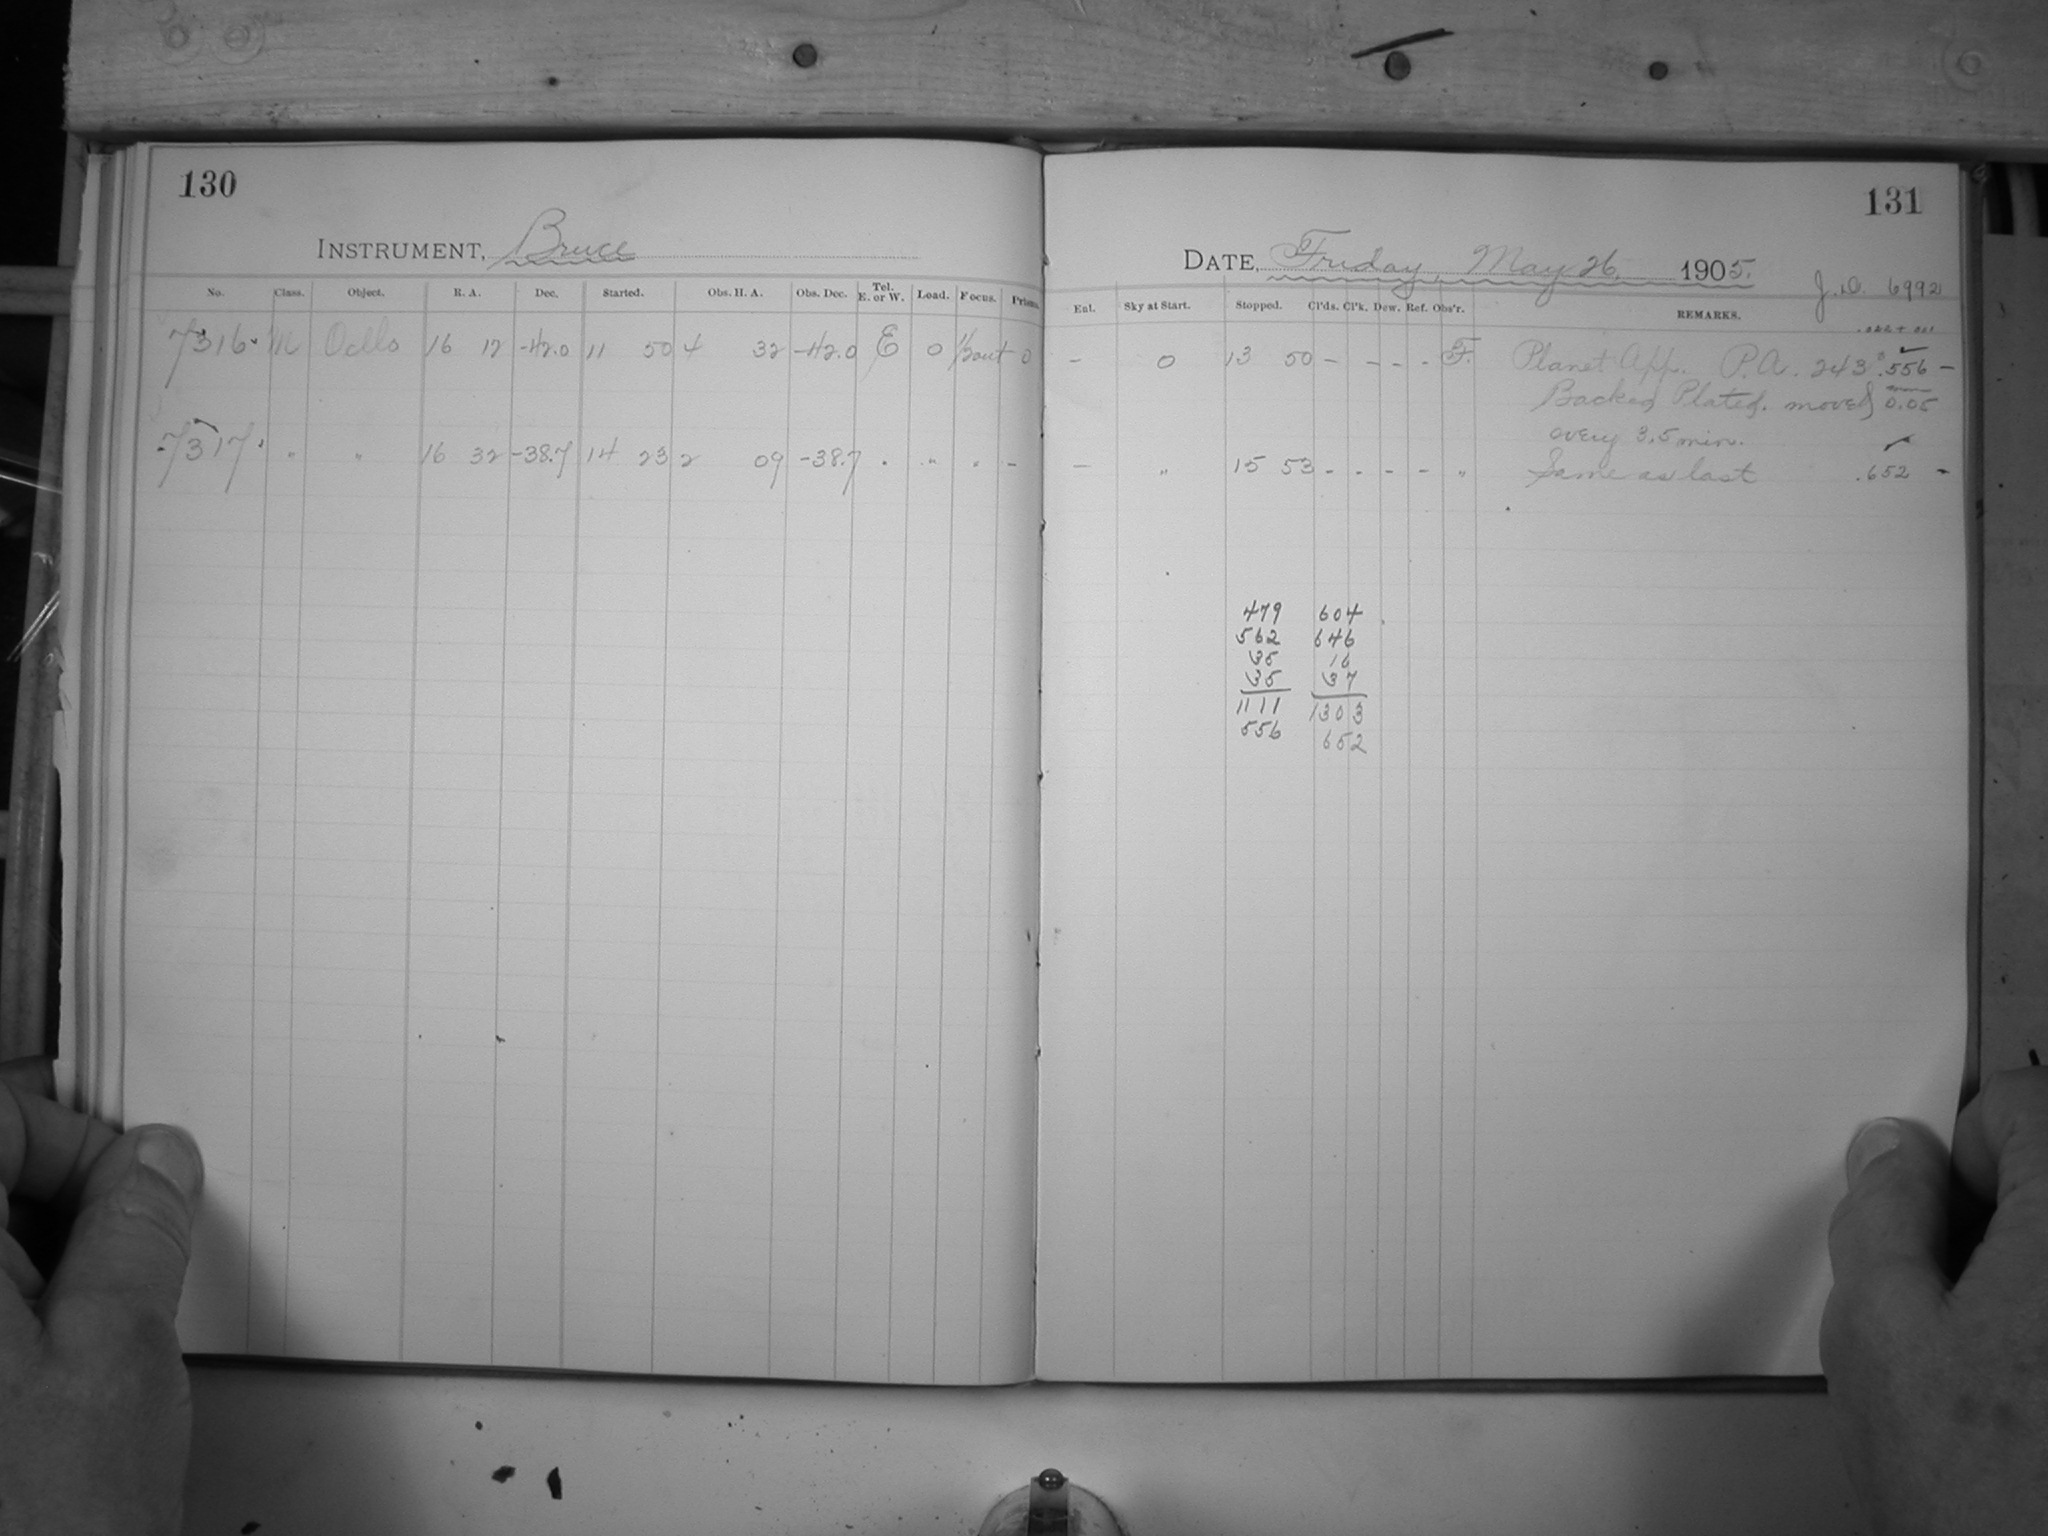 130
INSTRUMENT, Bruce
No. Class. Object. R. A. Dec. Started. Obs. H. A. Obs. Dec. Tel. E. or W. Load. Focus. Prisms.
7316 M Ocllo 16 12 -42.0 11 50 4 32 -42.0 E 0 0
7317 " " 16 32 -38.7 14 23 2 09 -38.7 " " " -
131
DATE, Friday, May 26, 1905.
J.D. 6992
Enl. Sky at Start. Stopped. Cl'ds. Cl'k. Dew. Ref. Obs'r. REMARKS.
- 0 13 50 - - - - F. Planet App. P.A. 243° .556 -
Backed Plates. moved 0.05
every 3.5 min.
- " 15 53 - - - - " Same as last .652 -
479 604
562 646
35 16
35 37
1111 1303
556 652